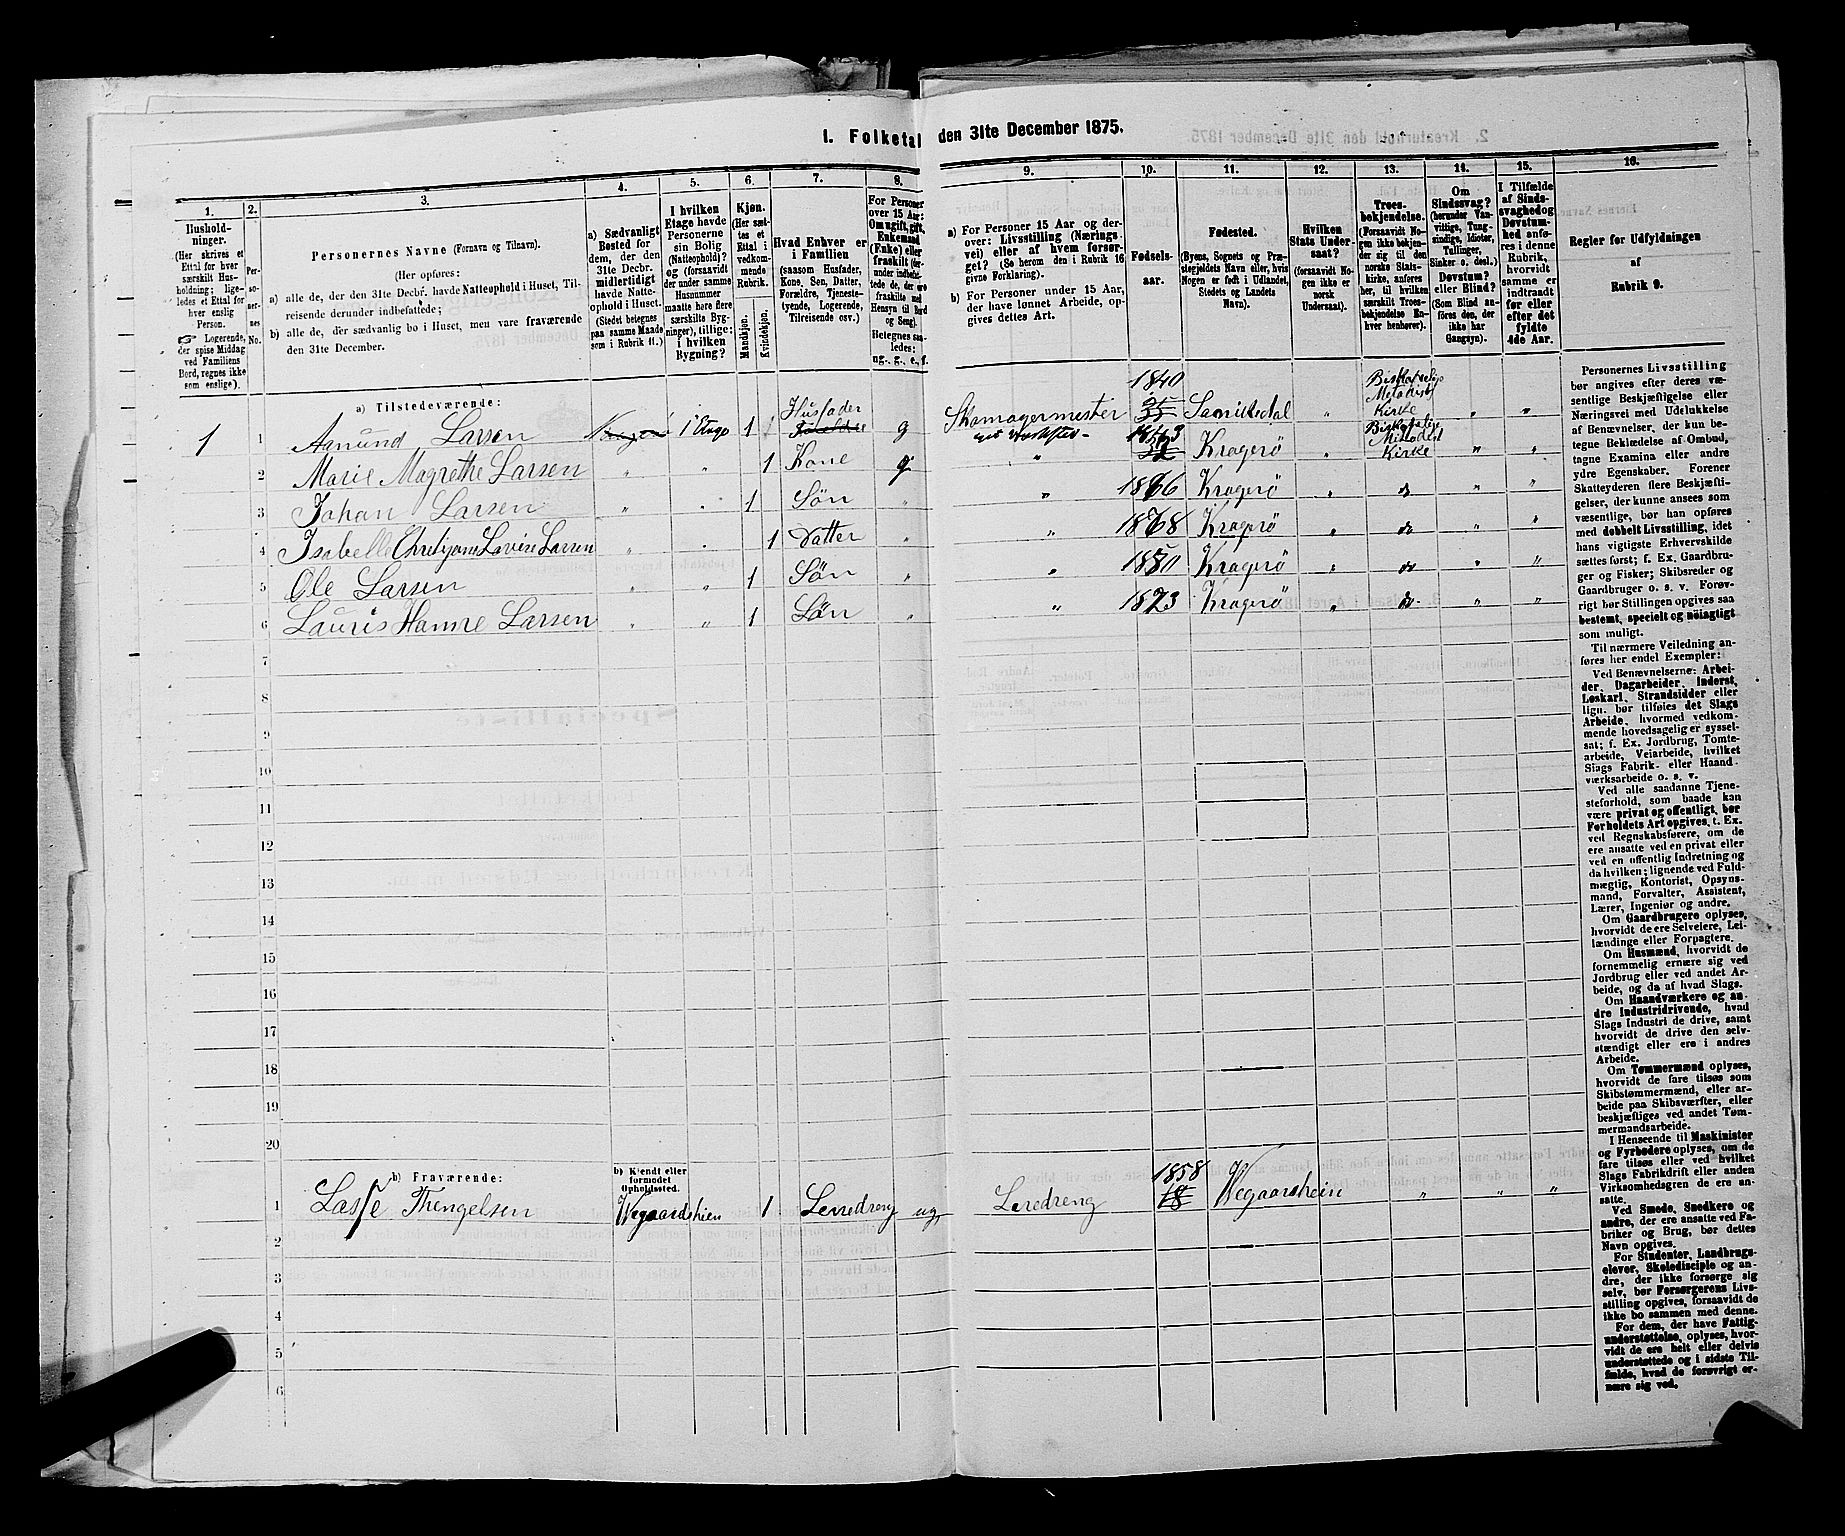 1. Folketal den 31te December 1875.
1. 2. 3. 4. 5. 6. 7. 8. 9. 10. 11. 12. 13. 14. 15. 16.
Hushold-
ninger.
(Her skrives et
Ettal for hver
særskilt Hus-
holdning; lige-
ledes et Ettal for
hver enslig
Person.
☞ Logerende,
der spise Middag
ved Familiens
Bord, regnes ikke
som enslige).
Per-
so-
ner-
nes
No.
Personernes Navne (Fornavn og Tilnavn).
(Her opføres:
a) alle de, der den 31te Decbr. havde Natteophold i Huset, Til-
reisende derunder indbefattede;
b) alle de, der sædvanlig bo i Huset, men vare fraværende
den 31te December.
a) Sædvanligt
Bosted for
dem, der den
31te Decbr.
midlertidigt
havde Natte-
ophold i Huset.
(Stedet betegnes
paa samme Maade
som i Rubrik 11.)
I hvilken
Etage havde
Personerne
sin Bolig
(Natteophold)?
og (forsaavidt
der under samme
Husnummer
maatte høre flere
særskilte Byg-
ninger), tillige:
i hvilken
Bygning?
Kjøn.
(Her sæt-
tes et
Ettal i
vedkom-
mende
Rubrik.
Mandkjøn.
Kvindekjøn.
Hvad Enhver er
i Familien
(saasom Husfader,
Kone, Søn, Datter,
Forældre, Tjeneste-
tyende, Logerende,
Tilreisende osv.)
For Personer
over 15 Aar:
Om ugift, gift,
Enkemand
(Enke) eller
fraskilt
Betegnes saa-
ledes:
ug., g., e., f.
a) For Personer 15 Aar og der-
over: Livsstilling (Nærings-
vei) eller af hvem forsør-
get? (Se herom den i Rubrik 16
givne Forklaring).
b) For Personer under 15 Aar,
der have lønnet Arbeide, op-
gives dettes Art.
Fødsels-
aar.
Fødested.
(Byens, Sognets og Præ-
stegjeldets Navn eller, hvis
Nogen er født i Udlandet,
Stedets og Landets
Navn).
Hvilken
Stats Under-
saat?
(forsaavidt No-
gen ikke er
norsk
Undersaat).
Troes-
bekjendelse.
(Forsaavidt No-
gen ikke bekjen-
der sig til den
norske Stats-
kirke, anføres
her, til hvilken
særskilt Troes-
bekjendelse En-
hver henhører).
Om
Sindssvag?
(herunder Van-
vittige, Tung-
sindige, Idioter,
Tullinger,
Sinker o. desl.)
Døvstum?
eller Blind?
(Som Blind an-
føres den, der
ikke har
Gangsyn).
I Tilfælde
af Sinds-
svaghed og
Døvstum-
hed anfø-
res i denne
Rubrik,
hvorvidt
samme er
indtraadt
før eller
efter det
fyldte
4de Aar.
Regler for Udfyldningen
af
Rubrik 9.
a) Tilstedeværende:
1 1 Amund Larsen Kragerø 1 Etage 1 Husfader g Skomagermester 1840 Sanikedal " Biskopelige Metodist Kirke " "
2 Marie Magrethe Larsen " " 1 Kone g " 1843 Kragerø " Biskopelige Metodist Kirke " "
3 Johan Larsen " " 1 Søn " " 1866 Kragerø " do " "
4 Isabelle Chrestjane Lovise Larsen " " 1 Datter " " 1868 Kragerø " do " "
5 Ole Larsen " " 1 Søn " " 1870 Kragerø " do " "
6 Lauris Hanne Larsen " " 1 Søn " " 1873 Kragerø " do " "
7
8
9
10
11
12
13
14
15
16
17
18
19
20
b) Fraværende:
b) Kjendt eller
formodet
Opholdssted.
1 Lasse Thengelsen Wegaardshien 1 Leredreng ug Leredreng 1858 18 Wegaarshein " " "
2
3
4
5
6
Personernes Livsstilling
bør angives efter deres væ-
sentlige Beskjæftigelse eller
Næringsvei med Udelukkelse
af Benævnelser, der kun be-
tegne Beklædelse af Ombud,
tagne Examina eller andre
ydre Egenskaber. Forener
Skatteyderen flere Beskjæfti-
gelser, der kunne ansees som
væsentlige, bør han opføres
med dobbelt Livsstilling, idet
hans vigtigste Erhvervskilde
sættes først; f. Ex. Gaardbru-
ger og Fisker; Skibsreder og
Gaardbruger o. s. v. Forøv-
rigt bør Stillingen opgives saa
bestemt, specielt og nøiagtigt
som muligt.
Til nærmere Veiledning an-
føres her endel Exempler:
Ved Benævnelserne: Arbei-
der, Dagarbeider, Inderst,
Løskarl, Strandsidder eller
lign. bør tilføies det Slags
Arbeide, hvormed vedkom-
mende hovedsagelig er syssel-
sat; f. Ex. Jordbrug, Tomte-
arbeide, Veiarbeide, hvilket
Slags Fabrik- eller Haand-
værksarbeide o. s. v.
Ved alle saadanne Tjene-
steforhold, som baade kan
være privat og offentligt, bør
Forholdets Art opgives, t. Ex.
ved Regnskabsførere, om de
ere ansatte ved en privat eller
ved en offentlig Indretning og
da hvilken; lignende ved Fuld-
mægtig, Kontorist, Opsyns-
mand, Forvalter, Assistent,
Lærer, Ingeniør og andre.
Om Gaardbrugere oplyses,
hvorvidt de ere Selveiere, Lei-
lændinge eller Forpagtere.
Om Husmænd, hvorvidt de
fornemmelig ernære sig ved
Jordbrug eller ved andet Ar-
beide, og da af hvad Slags.
Om Haandværkere og an-
dre Industridrivende, hvad
Slags Industri de drive, samt
hvorvidt de drive den selv-
stændigt eller ere i andres
Arbeide.
Om Tømmermænd oplyses,
hvorvidt de fare tilsøs som
Skibstømmermænd, eller ar-
beide paa Skibsværfter, eller
beskjæftiges ved andet Tøm-
mermandsarbeide.
I Henseende til Maskinister
og Fyrbødere oplyses, om de
fare tilsøs eller ved hvilket
Slags Fabrikdrift eller anden
Virksomhedsgren de ere an-
satte.
Ved Smede, Snedkere og
andre, der ere ansatte ved Fa-
briker og Brug, bør dettes
Navn opgives.
For Studenter, Landbrugs-
elever, Skoledisciple og an-
dre, der ikke forsørge sig
selv, bør Forsørgerens Livs-
stilling opgives, forsaavidt de
ikke bo sammen med denne.
For dem, der have Fattig-
understøttelse, oplyses, hvor-
vidt de ere helt eller delvis
understøttede og i sidste Til-
fælde, hvad de forøvrigt er-
nære sig ved.